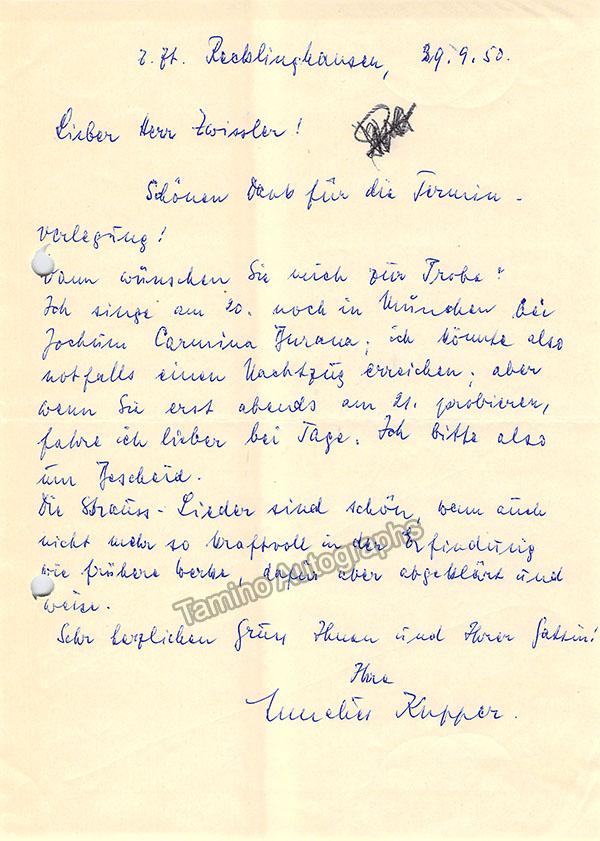 z. Zt. Recklinghausen, 29.9.50.
Lieber Herr Zwissler!
Schönen Dank für die Termin-
verlegung!
Wann wünschen Sie mich zur Probe?
Ich singe am 20. noch in München bei
Jochum Carmina Burana; ich könnte also
notfalls einen Nachtzug erreichen; aber
wenn Sie erst abends am 21. probieren,
fahre ich lieber bei Tage. Ich bitte also
um Bescheid.
Die Strauss-Lieder sind schön, wenn auch
nicht mehr so kraftvoll in der Erfindung
wie frühere Werke, dafür aber abgeklärt und
weise.
Sehr herzlichen Gruss Ihnen und Ihrer Gattin!
Ihre
Annelies Kupper.
Tamino Autographs